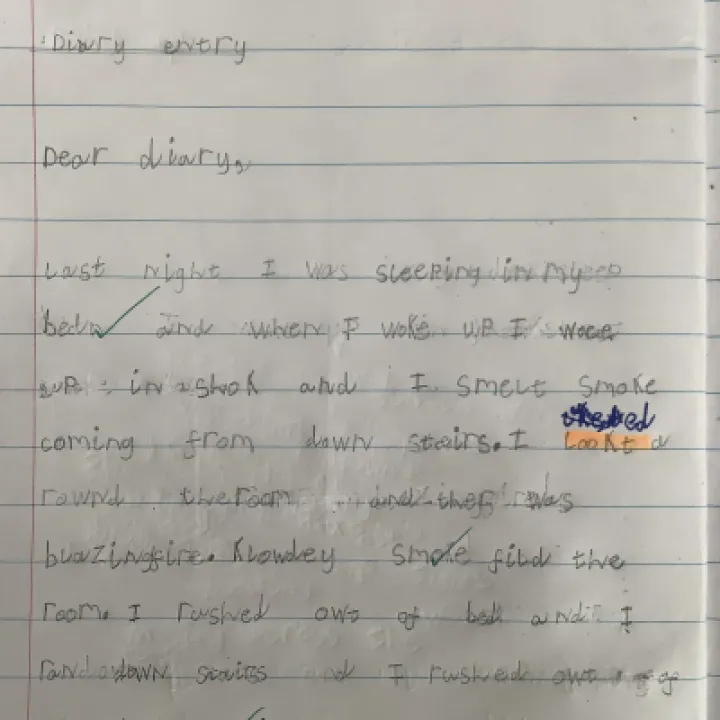 Diary entry
Dear diary,
Last night I was sleeping in my
bed and when I woke up I woce
up in a shok and I smelt smoke
coming from down stairs. I lookt a
rownd the room and ther was
blazing fire. Klowdey smoke filld the
room. I rushed owt of bed and I
ran down stairs and I rushed owt of